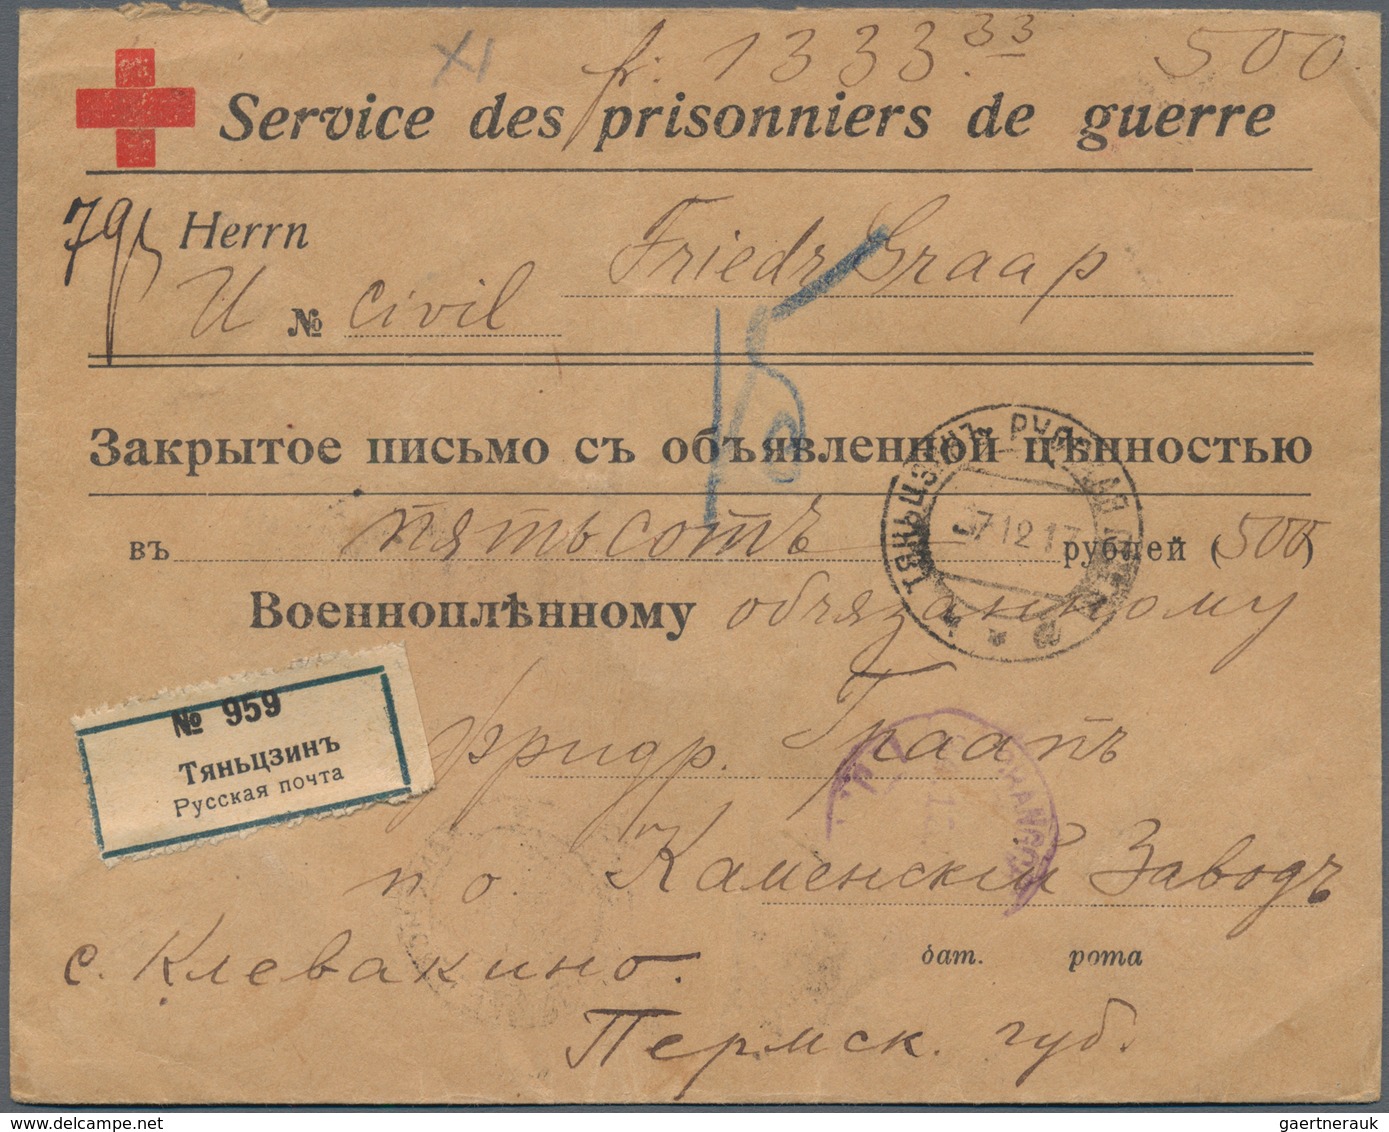 XI fr. 1333.33 500
Service des prisonniers de guerre
Herrn Friedr Graap
U № civil
Закрытое письмо съ объявленной цѣнностью
въ пятьсотъ рублей (500)
7 12 17
Военноплѣнному обязанному
№ 959
Тяньцзинъ
Русская почта
Фридр. Граапъ
п. о. Каменскій Заводъ
бат. рота
с. Клевакино.
Пермск. губ.
delcampe.net
gaertnerauk